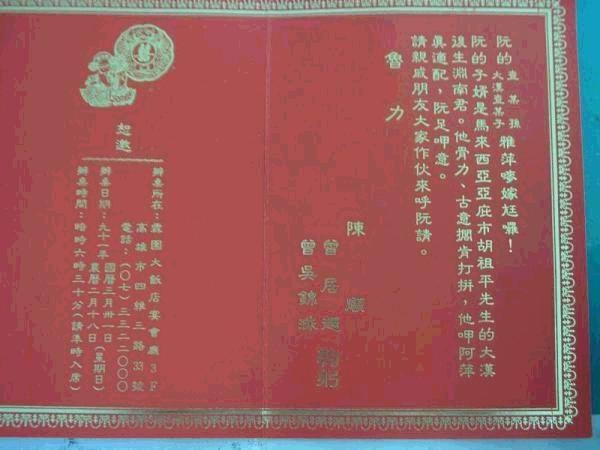 阮的 查某孫 大漢查某子 雅萍嘜嫁尪囉！
阮的子婿是馬來西亞亞庇市胡祖平先生的大漢
後生淵南君。他骨力、古意擱肯打拼，他呷阿萍
真適配，阮足呷意。
請親戚朋友大家作伙來呼阮請。
魯力
陳順
曾居 鞠躬
曾吳錦珠
囍
恕邀
辦桌所在：霖園大飯店宴會廳3F
高雄市四維三路33號
電話：(〇七)三三二二〇〇〇
辦桌日期：九十一年 國曆三月卅一日 農曆二月十八日 (星期日)
辦桌時間：暗時六時三十分(請準時入席)